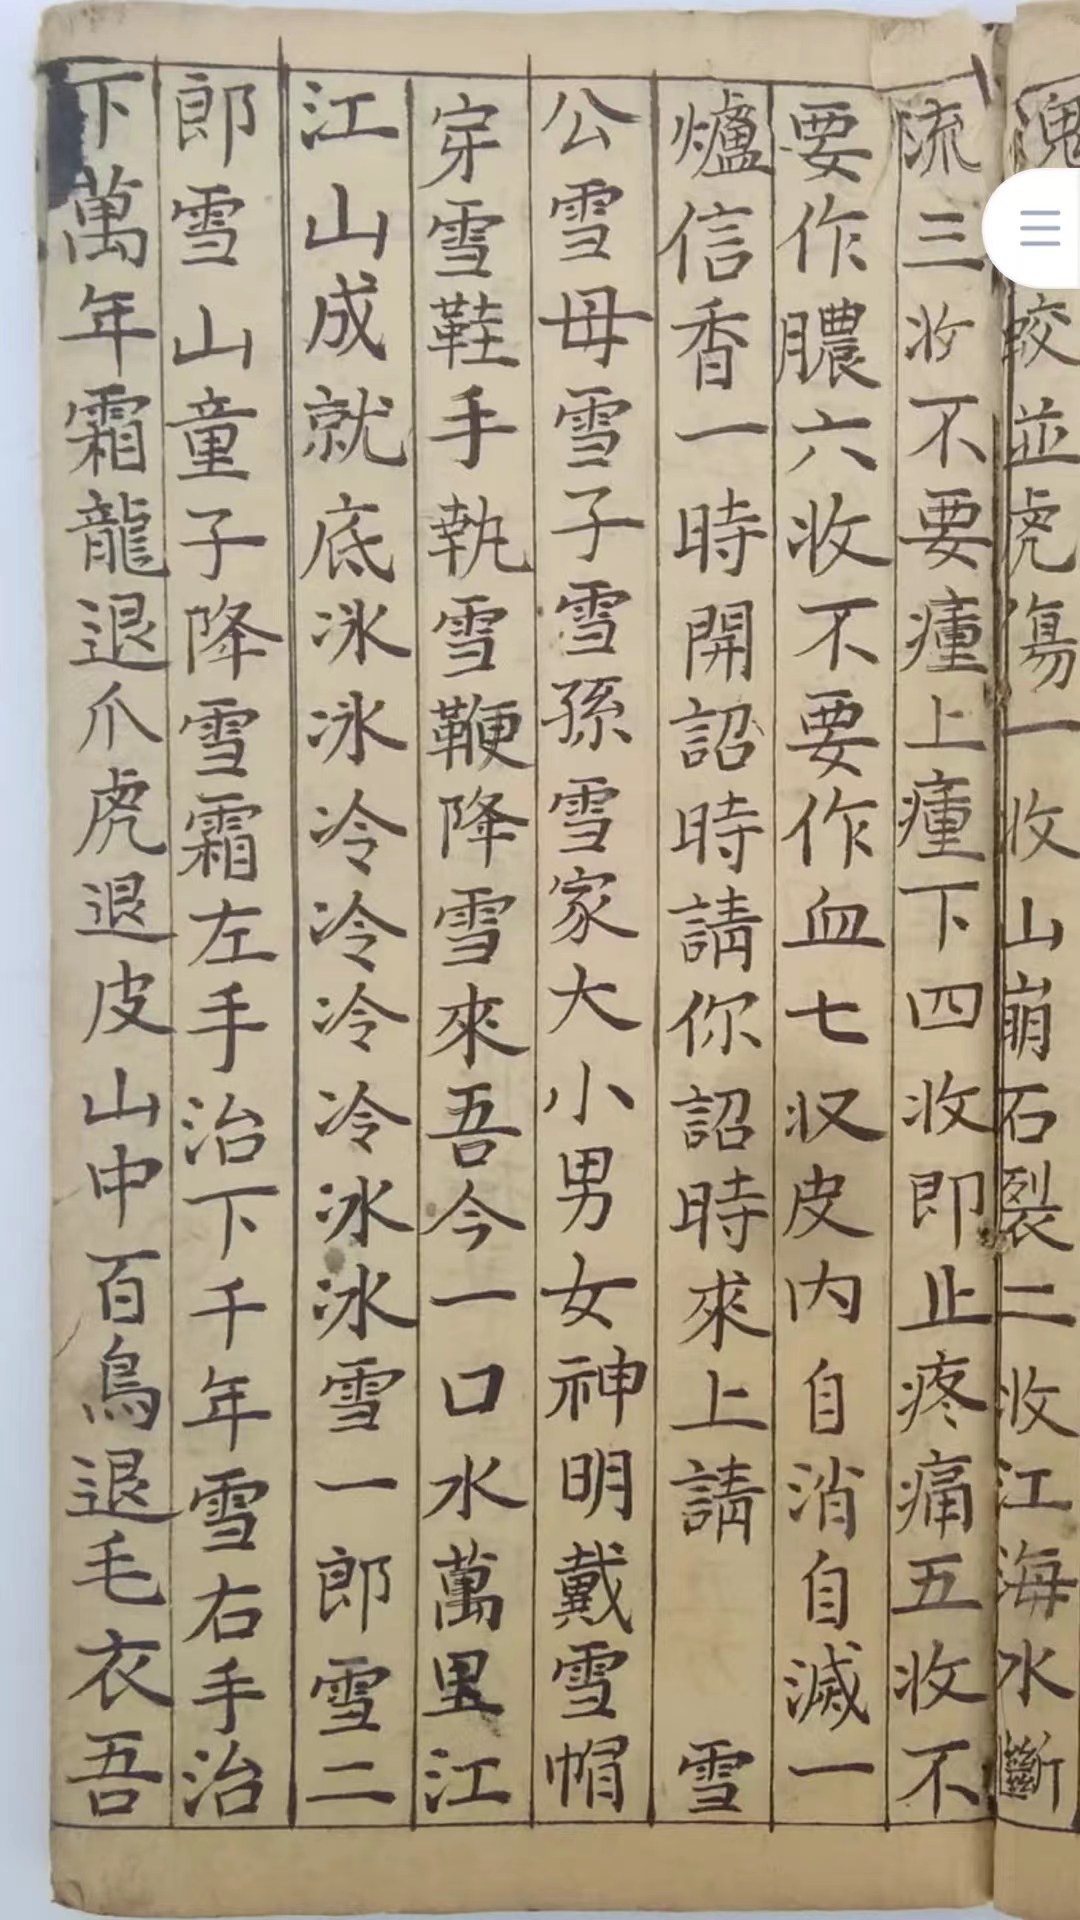 蛟並虎傷一收山崩石裂二收江海水斷
流三收不要瘇上瘇下四收即止疼痛五收不
要作膿六收不要作血七収皮内自消自滅一
爐信香一時開詔時請你詔時來上請 雪
公雪母雪子雪孫雪家大小男女神明戴雪帽
穿雪鞋手執雪鞭降雪來吾今一口水萬里江
江山成就底冰冰冷冷冷冷冰冰雪一郎雪二
郎雪山童子降雪霜左手治下千年雪右手治
下萬年霜龍退爪虎退皮山中百鳥退毛衣吾